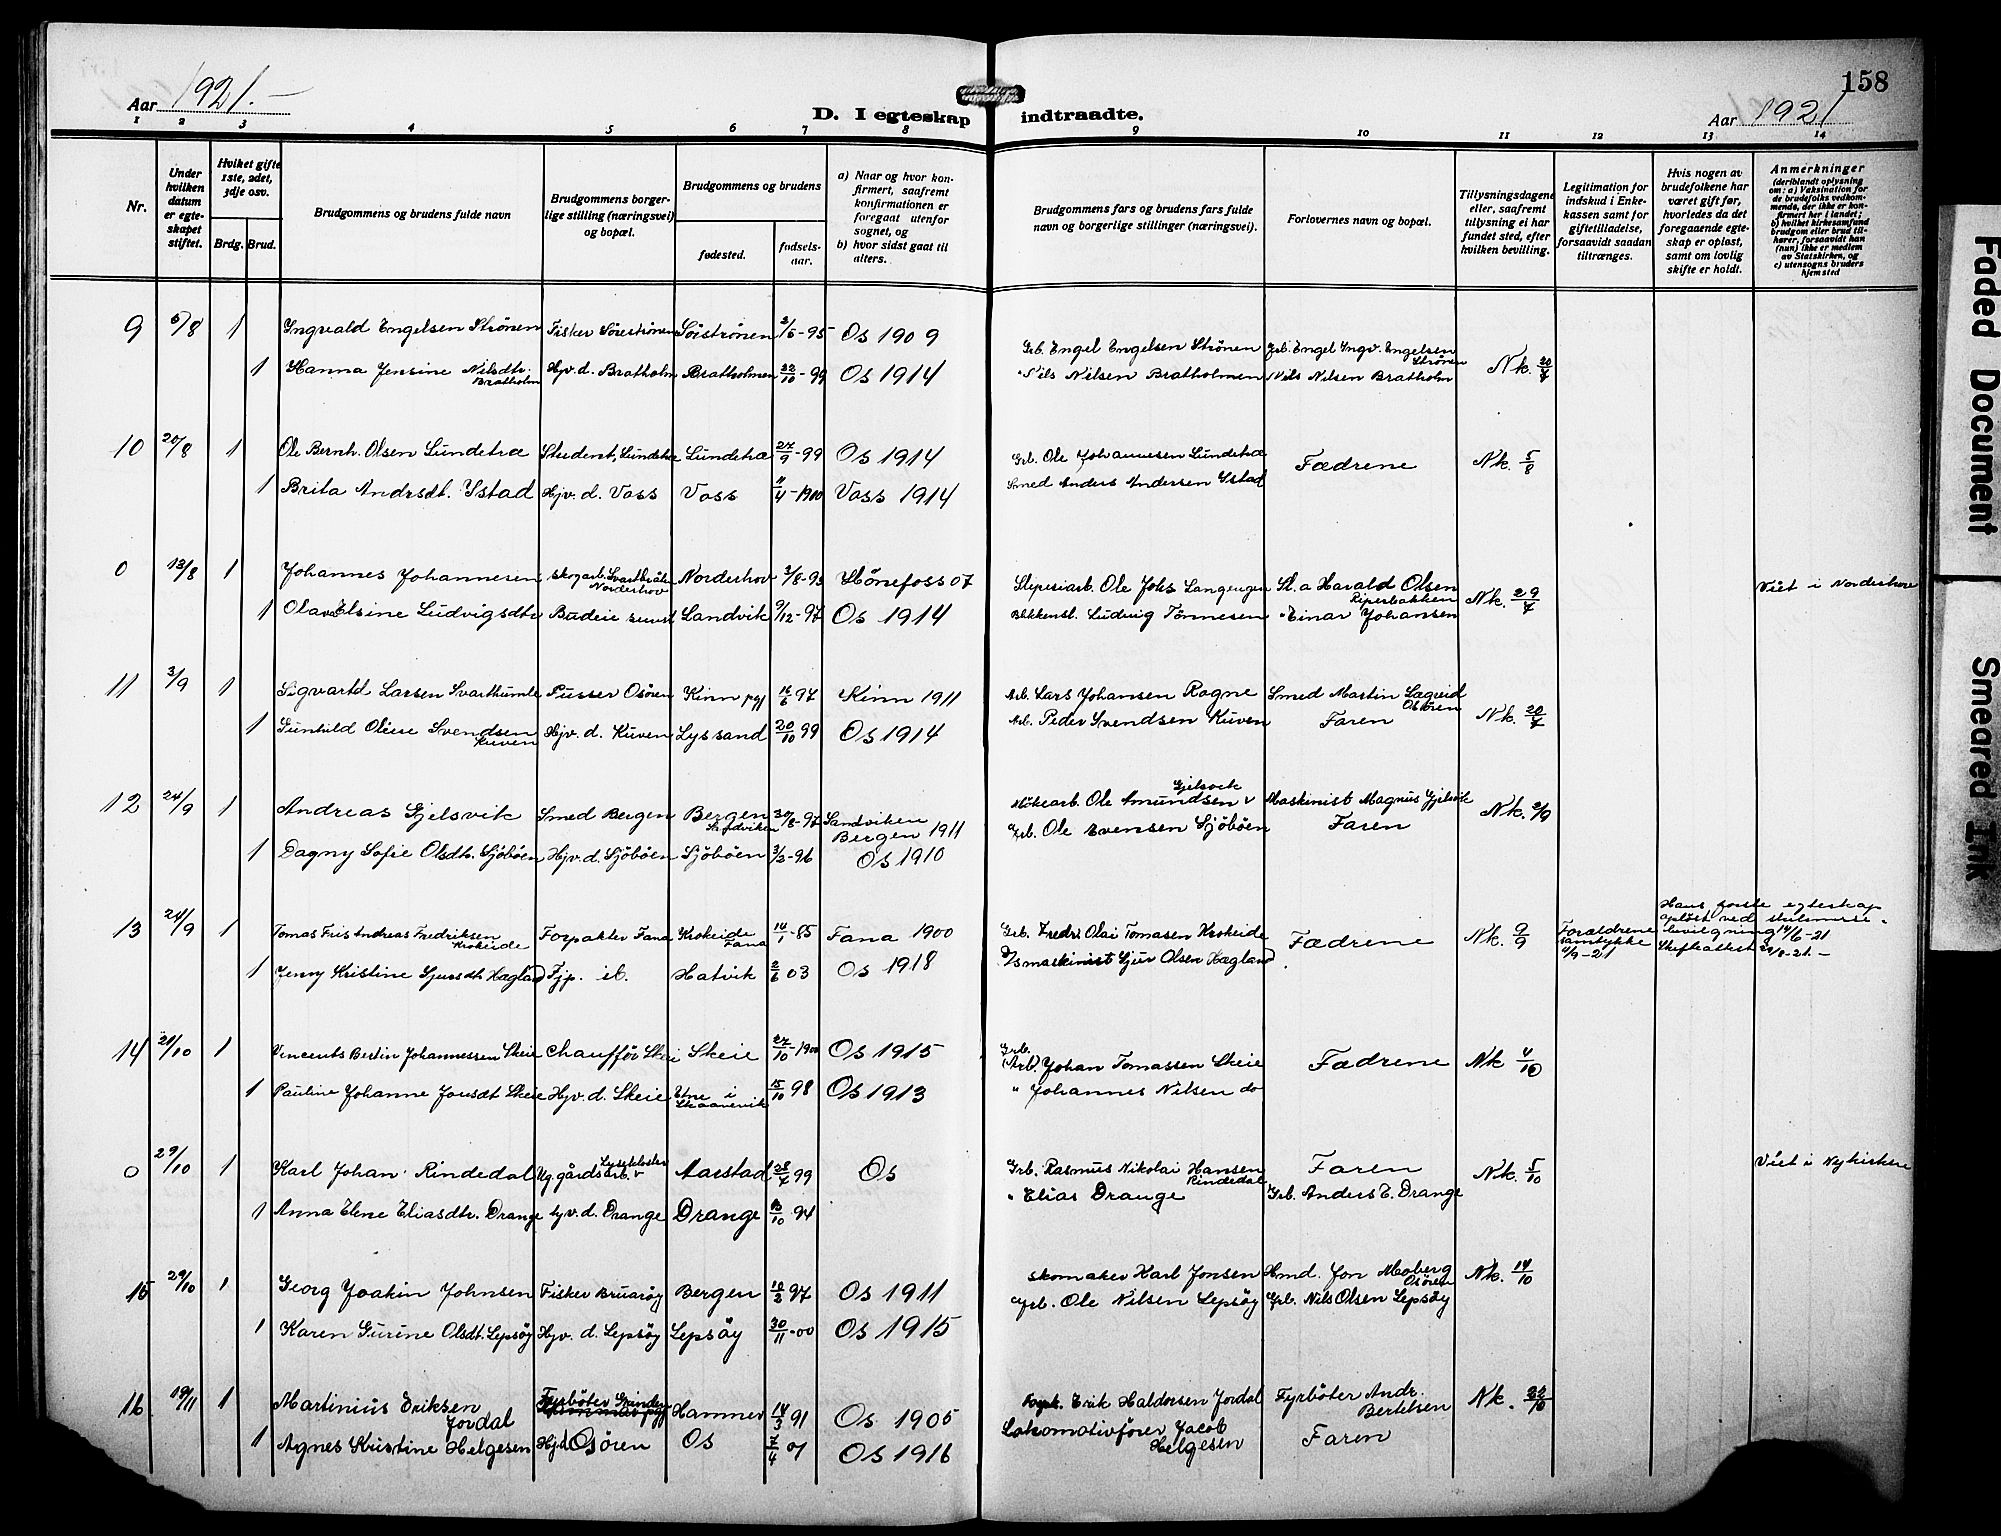 158
Aar 1921.-
D. I egteskap indtraadte.
Aar 1921
1 2 3 4 5 6 7 8 9 10 11 12 13 14
Nr.
Under hvilken datum er egteskapet stiftet.
Hvilket gifte 1ste, 2det, 3dje osv.
Brdg. Brud.
Brudgommens og brudens fulde navn
Brudgommens borgerlige stilling (næringsvei) og bopæl.
Brudgommens og brudens
fødested.
fødselsaar.
a) Naar og hvor konfirmert, saafremt konfirmationen er foregaat utenfor sognet, og
b) hvor sidst gaat til alters.
Brudgommens fars og brudens fars fulde navn og borgerlige stillinger (næringsvei).
Forlovernes navn og bopæl.
Tillysningsdagene eller, saafremt tillysning ei har fundet sted, efter hvilken bevilling.
Legitimation for indskud i Enkekassen samt for giftetilladelse, forsaavidt saadan tiltrænges.
Hvis nogen av brudefolkene har været gift før, hvorledes da det foregaaende egteskap er opløst, samt om lovlig skifte er holdt.
Anmerkninger
(deriblandt oplysning om: a) Vaksination for de brudefolks vedkommende, der ikke er konfirmert her i landet; b) hvilket kirkesamfund brudgom eller brud tilhører, forsaavidt han (hun) ikke er medlem av Statskirken, og c) utensogns bruders hjemsted
9 6/8 1 Ingvald Engelsen Strönen Fisker Söreströnen Söiströnen 95 Os 1909 Grb. Engel Engelsen Strönen Grb. Engel Ingv. Engelsen Strönen
1 Hanna Jensine Nilsdtr. Bratholm Hjv. d. Bratholm Bratholmen 22/10-99 Os 1914 " Nils Nilsen Bratholmen Nils Nilsen Bratholm Nk. 20/7
10 20/8 1 Ole Bernh. Olsen Lundetræ Student, Lundetræ Lundetræ 27/9-99 Os 1914 Grb. Ole Johannesen Lundetræ Fædrene Nk. 5/8
1 Brita Andrsdt. Ystad Hjv. d. Voss Voss 11/4-1900 Voss 1914 Smed Anders Andersen Ystad
0 13/8 1 Johannes Johannesen Skogarb. Svartbråten Norderhov Norderhov 3/8-93 Hönefoss 07 Slipesiarb. Ole Johs Langengen Sl. a Harald Olsen Riperbakken Viet i Norderhov
1 Olava Elsine Ludvigsdtr Badeie Landvik 9/12-97 Os 1914 Blikkensl. Ludvig Tönnesen " Einar Johansen Nk. 29/7
11 3/9 1 Sigvartd Larsen Svarthumle Pusser Osören Kinn pgj 16/6 97 Kinn 1911 Arb. Lars Johansen Rogne Smed Martin Lægreid Osören
1 Gunhild Oline Svendsen Kuven Hjv. d. Kuven Lyssand 20/10 99 Os 1914 Arb. Peder Svendsen Kuven Faren Nk. 20/7
12 24/9 1 Andreas Gjelsvik Smed Bergen Bergen Sandviken 30/8-97 Sandviken Bergen 1911 Ole Amundsen Gjelsvik Maskinist Magnus Gjelsvik Nk. 2/9
1 Dagny Sofie Olsdtr. Sjöböen Hjv. d. Sjöböen Sjöböen 3/3-96 Os 1910 Grb. Ole Evensen Sjöböen Faren
13 24/9 1 Tomas Friis Andreas Fredriksen Krokeide Forpakter Fana Krokeide Fana 14/1-85 Fana 1900 Grb. Fredr. Olai Tomasen Krokeide Fædrene Nk. 9/9 Forældrene samtykke 4/9-21 Hans forste egteskap oplöst ved skilsmisse-bevilgning 14/6-21 Skifteattest 22/8-21.-
1 Jenny Kristine Gjursdt. Hægland Fjp. ib. Hatvik 2/6 03 Os 1918 D/smaskinist Gjur Olsen Hægland
14 21/10 1 Vincents Bertin Johannessen Skeie Chauffför Skei Skeie 27/10-1900 Os 1915 Grb. (Arb) Johan Tomassen Skeie Fædrene Nk 4/10
1 Pauline Johanne Jonsdt Skeie Hjv. d. Skeie Etne i Skaanevik 15/10 98 Os 1913 " Johannes Nilsen do
0 29/10 1 Karl Johan Rindedal Ug. gårdsarb. Lysekloster Aarstad 28/7 99 Os Grb. Rasmus Nikolai Hansen Rindedal Faren Nk. 5/10 Viet i Nykirken
1 Anna Elene Eliasdtr. Drange hjv. d. Drange Drange 10 94 " Elias Drange Grb. Anders E. Drange
15 29/10 1 Georg Joakin Johnsen Fisker Bruaröy Bergen 10/3 97 Os 1911 Skomaker Karl Jonsen Hmd. Jon Moberg Osören Nk. 14/10
1 Karen Gurine Olsdt. Lepsöy Hjv. d. Lepsöy Lepsöy 30/11-00 Os 1915 Grb. Ole Nilsen Lepsöy Grb. Nils Olsen Lepsöy
16 19/11 1 Martinius Eriksen Jordal Fyrböter Hammer 14/3 91 Os 1905 Erik Haldorsen Jordal Fyrböter Andr. Bertelsen Nk. 22/10
1 Agnes Kristine Helgesen Hjd. Osören Os 7/4 01 Os 1916 Lokomotivförer Jacob Helgesen Faren
Faded Document
Smeared Ink